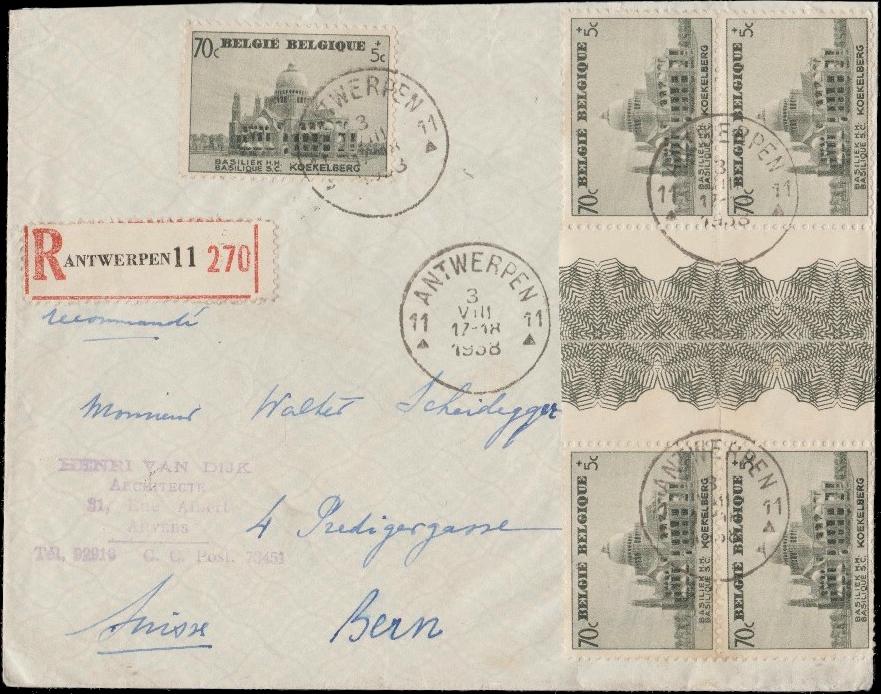 70c BELGIË BELGIQUE +5c
BASILIEK H.H.
BASILIQUE S.C. KOEKELBERG
ANTWERPEN
3
11
1938
BELGIË BELGIQUE +5c
70c
BASILIEK H.H.
BASILIQUE S.C. KOEKELBERG
BELGIË BELGIQUE +5c
70c
BASILIEK H.H.
BASILIQUE S.C. KOEKELBERG
ANTWERPEN
3
11 11
17-18
1938
R ANTWERPEN 11 270
recommandé
ANTWERPEN
3
VIII
11 17-18 11
1938
Monsieur Walter Scheidegger
HENRI VAN DIJK
ARCHITECTE
31, Rue Albert
ANVERS
Tél. 92919 C. C. Post. 73451
4 Predigergasse
Suisse Bern
BELGIË BELGIQUE +5c
70c
BASILIEK H.H.
BASILIQUE S.C. KOEKELBERG
BELGIË BELGIQUE
70c
BASILIEK H.H.
BASILIQUE S.C. KOEKELBERG
ANTWERPEN
3
11